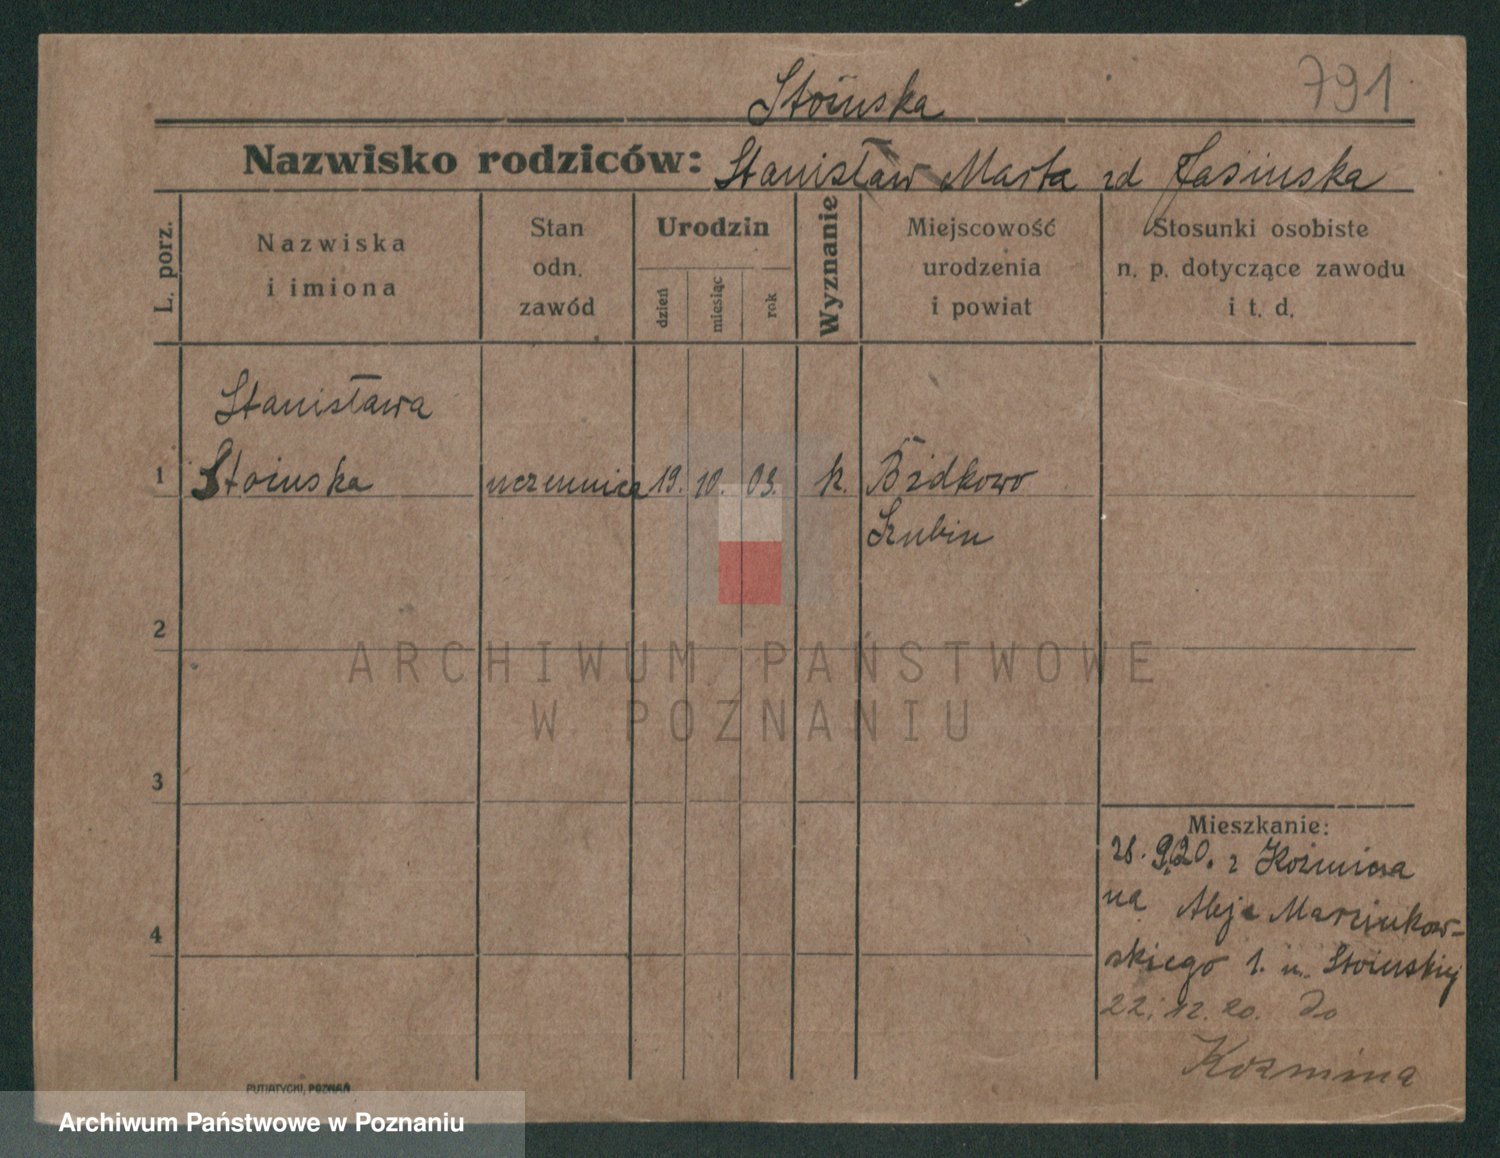 791
Stoińska
Nazwisko rodziców: Stanisław Marta zd Jasińska
L. porz.
Nazwiska
i imiona
Stan
odn.
zawód
Urodzin
dzień
miesiąc
rok
Wyznanie
Miejscowość
urodzenia
i powiat
Stosunki osobiste
n. p. dotyczące zawodu
i t. d.
Stanisława
1 Stoinska uczennica 19. 10. 03. k.
Szubin
2
ARCHIWUM PAŃSTWOWE
W POZNANIU
3
Mieszkanie:
28. 9.20. z Koźmina
na Aleje Marcinkow-
4
skiego 1. u. Stoinskiej
22. 12. 20. do
Kozmina
PUTIATYCKI, POZNAŃ
Archiwum Państwowe w Poznaniu